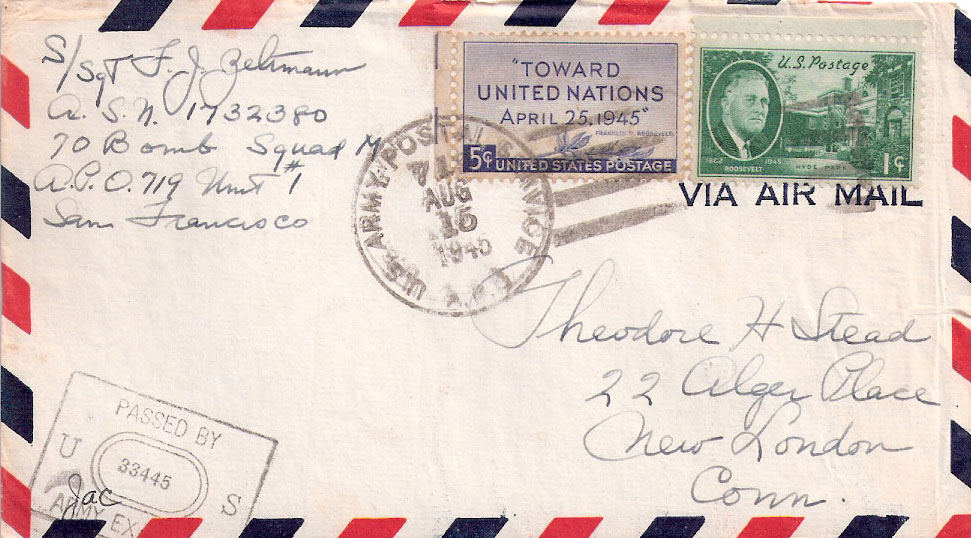 S/Sgt F. J. Zeltmann
A.S.N. 1732380
70 Bomb Squad M
A.P.O. 719 Unit #1
San Francisco
"TOWARD
UNITED NATIONS
APRIL 25, 1945"
FRANKLIN D. ROOSEVELT
5¢ UNITED STATES POSTAGE
U.S. Postage
1882 1945
ROOSEVELT HYDE PARK 1¢
VIA AIR MAIL
U.S. ARMY POSTAL SERVICE
AUG
15
1945
A.P.O.
Theodore H Stead
22 Alger Place
New London
Conn.
PASSED BY
U 33445 S
Jac
ARMY EX